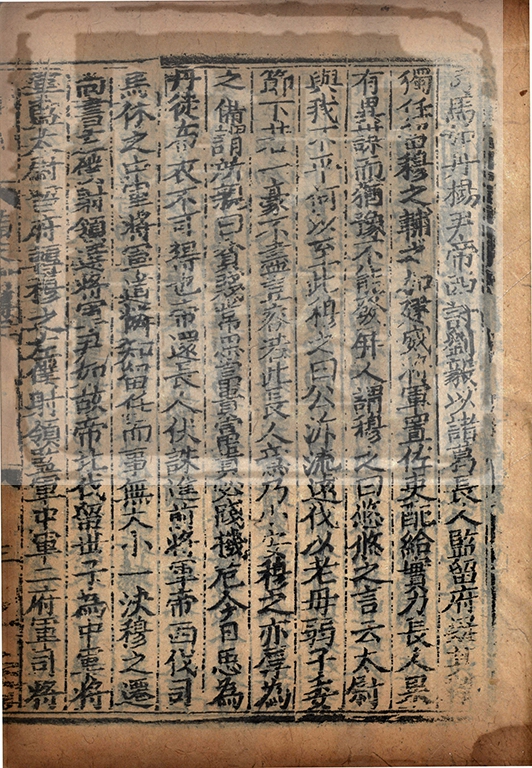 司馬加丹楊尹帝西討劉毅以諸葛長人監留府疑其難
獨任留穆之輔之加建威將軍置佐吏配給實力長人果
有異謀而猶豫不能發屏人謂穆之曰悠悠之言云太尉
與我不平何以至此穆之曰公泝流遠伐以老母弱子委
節下若一豪不盡豈容若此長人意乃小安穆之亦厚為
之備謂所親曰貧賤常思富貴富貴必踐機危今日思為
丹徒布衣不可得也帝還長人伏誅進前將軍帝西伐司
馬休之中軍將軍道憐知留任而事無大小一決穆之遷
尚書右僕射領選將軍尹如故帝北伐留世子為中軍將
軍監太尉留府轉穆之左僕射領監軍中軍二府軍司將